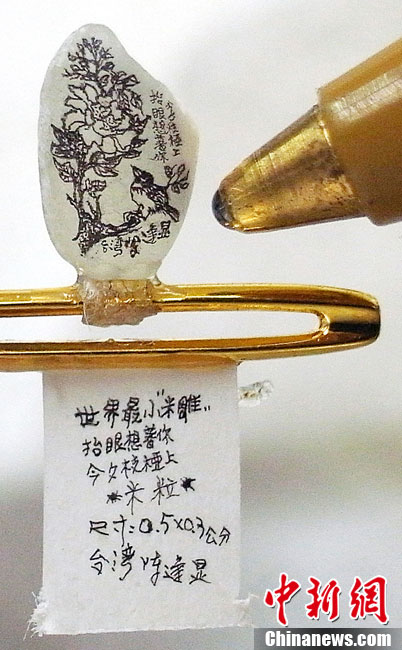 抬眼想著你
今夕枝椏上
台湾陳逢显
世界最小"米雕"
抬眼想著你
今夕枝椏上
*米粒*
尺寸:0.5x0.3公分
台湾陈逢显
中新網
Chinanews.com